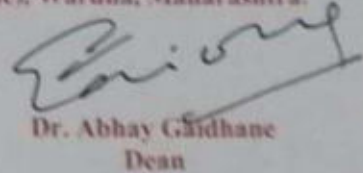 Wardha, Maharashtra.
Dr. Abhay Gaidhane
Dean